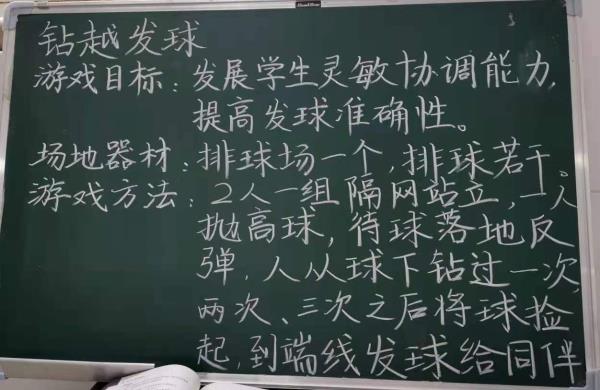 钻越发球
游戏目标：发展学生灵敏协调能力,
提高发球准确性。
场地器材：排球场一个,排球若干。
游戏方法：2人一组隔网站立,一人
抛高球,待球落地反
弹,人从球下钻过一次
两次、三次之后将球捡
起,到端线发球给同伴